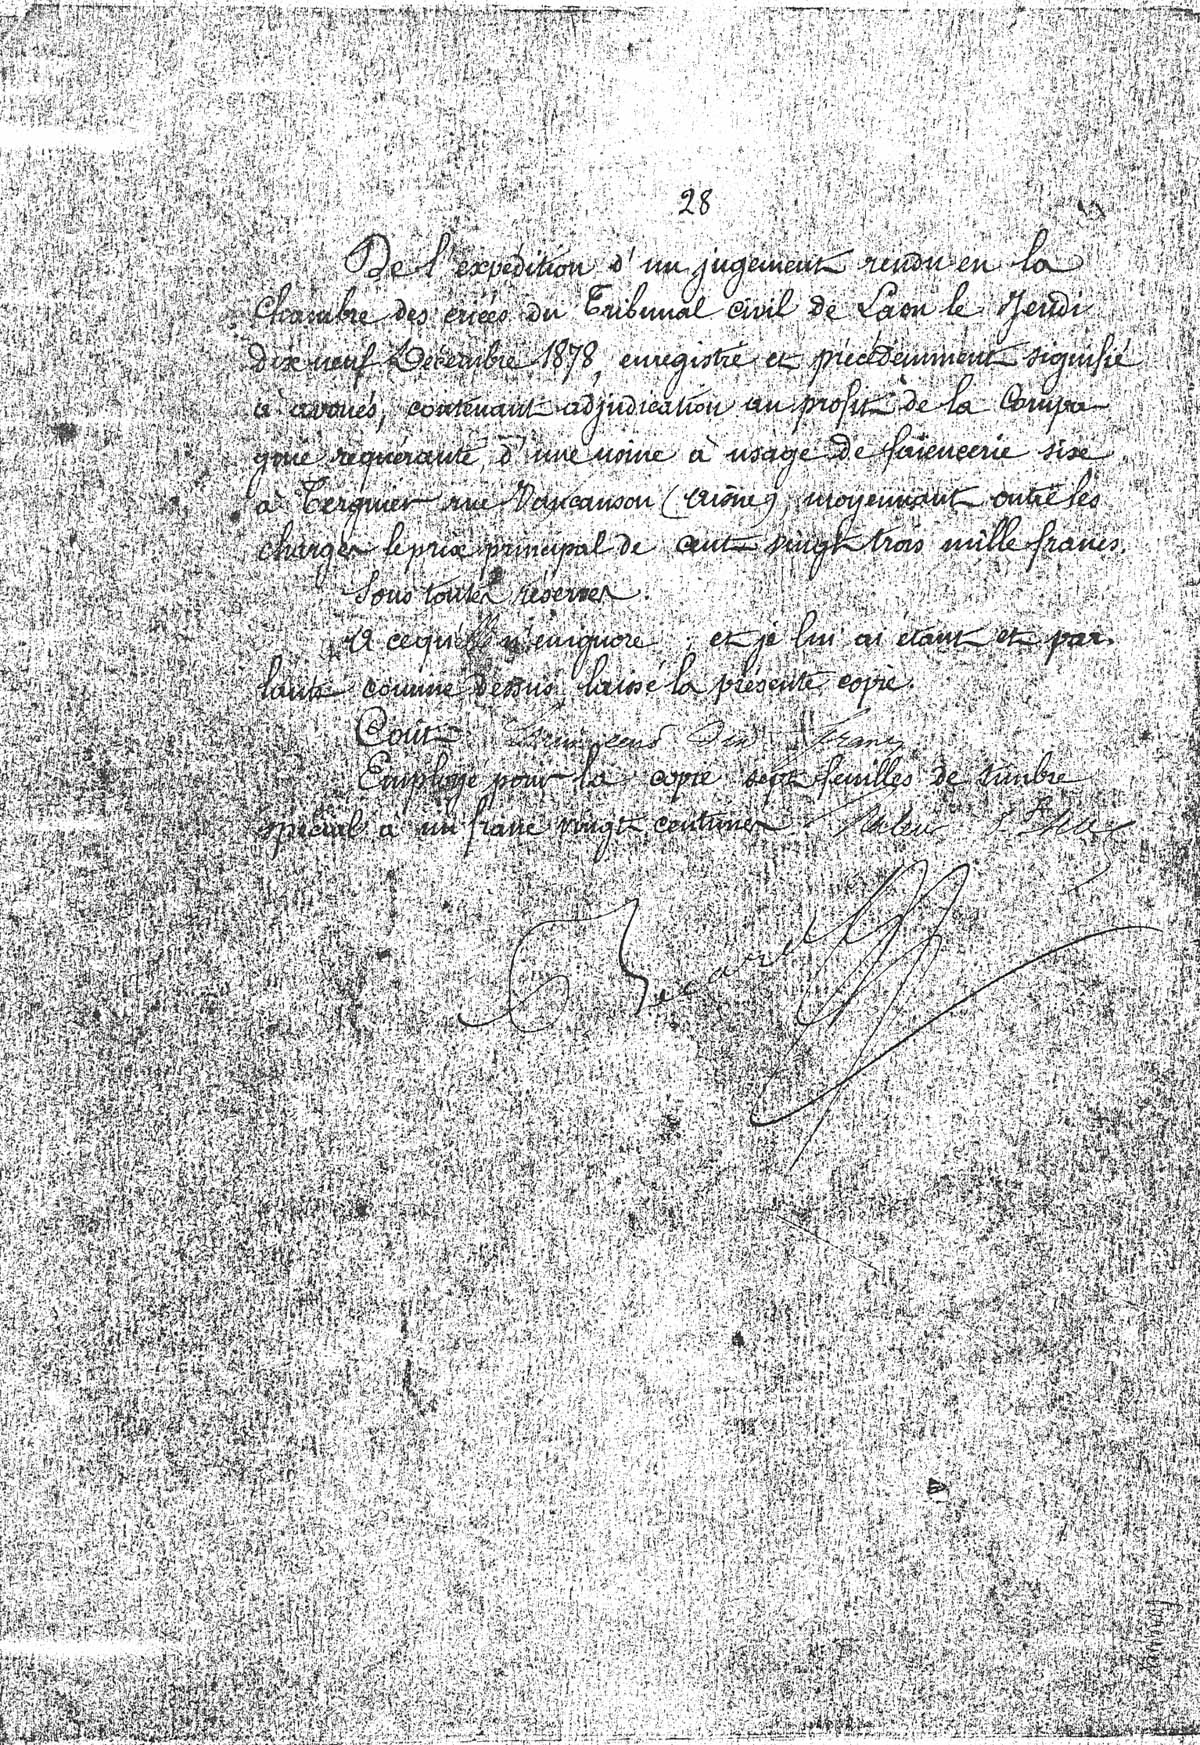 28
De l'expédition d'un jugement rendu en la
Chambre des criées du Tribunal civil de Laon le Jeudi
dix neuf Décembre 1878, enregistré et précédemment signifié
à avoués, contenant adjudication au profit de la Compa-
gnie requérante, d'une usine à usage de faïencerie sise
à Tergnier rue Vaucanson (Aisne), moyennant outre les
charges le prix principal de cent vingt trois mille francs.
Sous toutes réserves.
A ce qu'elle n'en ignore, et je lui ai étant et par-
lant comme dessus laissé la présente copie.
Coût francs
Employé pour la copie sept feuilles de timbre
spécial à un franc vingt centimes